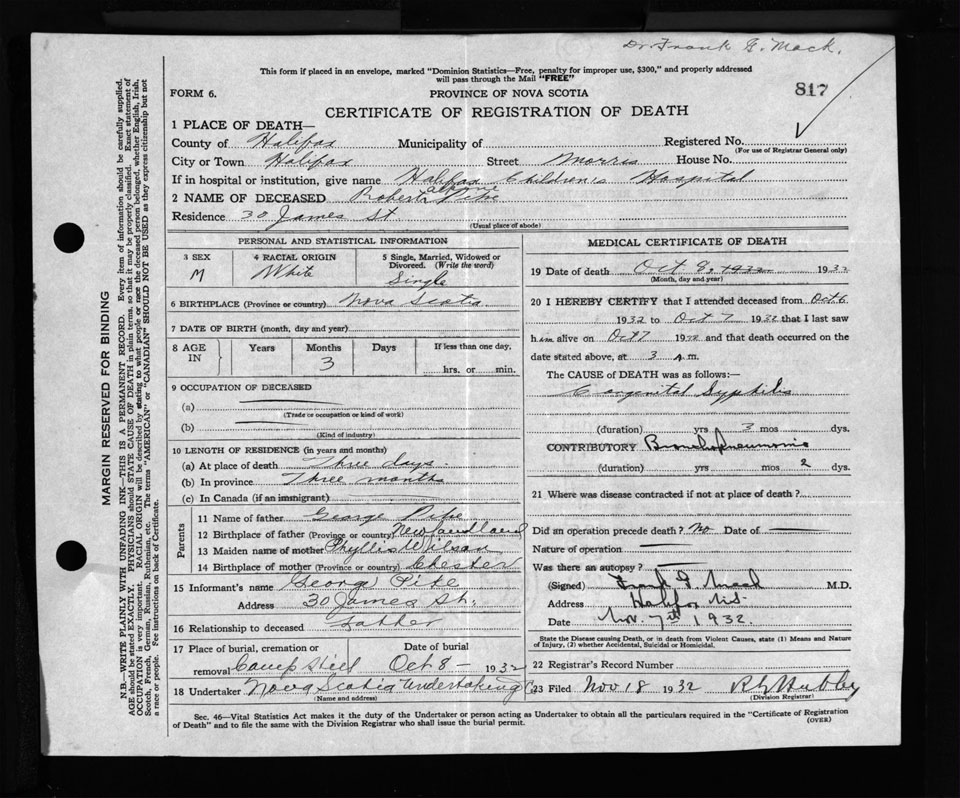 Dr. Frank G. Mack.
This form if placed in an envelope, marked "Dominion Statistics—Free, penalty for improper use, $300," and properly addressed
will pass through the Mail "FREE"
817
FORM 6.
PROVINCE OF NOVA SCOTIA
CERTIFICATE OF REGISTRATION OF DEATH
1 PLACE OF DEATH—
County of Halifax Municipality of Registered No.
(For use of Registrar General only)
City or Town Halifax Street Morris House No.
If in hospital or institution, give name Halifax Children's Hospital
2 NAME OF DECEASED Robert
Residence 30 James St
(Usual place of abode)
PERSONAL AND STATISTICAL INFORMATION
3 SEX 4 RACIAL ORIGIN 5 Single, Married, Widowed or
Divorced. (Write the word)
M White Single
6 BIRTHPLACE (Province or country) Nova Scotia
7 DATE OF BIRTH (month, day and year)
8 AGE IN Years Months Days If less than one day,
3 hrs. or min.
9 OCCUPATION OF DECEASED
(a)
(Trade or occupation or kind of work)
(b)
(Kind of industry)
10 LENGTH OF RESIDENCE (in years and months)
(a) At place of death Three days
(b) In province Three months
(c) In Canada (if an immigrant)
Parents
11 Name of father George
12 Birthplace of father (Province or country) Newfoundland
13 Maiden name of mother Phyllis Wilson
14 Birthplace of mother (Province or country) Chester
15 Informant's name George
Address 30 James St.
16 Relationship to deceased Father
17 Place of burial, cremation or Date of burial
removal Camp Hill Oct 8 - 1932
18 Undertaker Nova Scotia Undertaking Co
(Name and address)
MEDICAL CERTIFICATE OF DEATH
19 Date of death Oct 9, 1932 1932
(Month, day and year)
20 I HEREBY CERTIFY that I attended deceased from Oct 6
1932 to Oct 7 1932 that I last saw
him alive on Oct 7 1932 and that death occurred on the
date stated above, at 3 A.m.
The CAUSE of DEATH was as follows:
Congenital Syphilis
(duration) yrs 3 mos dys.
CONTRIBUTORY Bronchopneumonia
(duration) yrs mos 2 dys.
21 Where was disease contracted if not at place of death?
Did an operation precede death? no Date of
Nature of operation
Was there an autopsy?
(Signed) Frank G. Mack M.D.
Address Halifax N.S.
Date Nov. 7th 1932.
State the Disease causing Death, or in death from Violent Causes, state (1) Means and Nature
of Injury, (2) whether Accidental, Suicidal or Homicidal.
22 Registrar's Record Number
23 Filed Nov 18 1932
(Division Registrar)
Sec. 46—Vital Statistics Act makes it the duty of the Undertaker or person acting as Undertaker to obtain all the particulars required in the "Certificate of Registration
of Death" and to file the same with the Division Registrar who shall issue the burial permit.
(OVER)
MARGIN RESERVED FOR BINDING
N.B.—WRITE PLAINLY WITH UNFADING INK—THIS IS A PERMANENT RECORD. Every item of information should be carefully supplied.
AGE should be stated EXACTLY. PHYSICIANS should STATE CAUSE OF DEATH in plain terms, so that it may be properly classified. Exact statement of
OCCUPATION is very important. RACIAL ORIGIN will be described by stating to what people or race the deceased person belonged, whether English, Irish,
Scotch, French, German, Russian, Ruthenian, etc. The terms "AMERICAN" or "CANADIAN" SHOULD NOT BE USED as they express citizenship but not
a race or people. Fee instructions on back of Certificate.